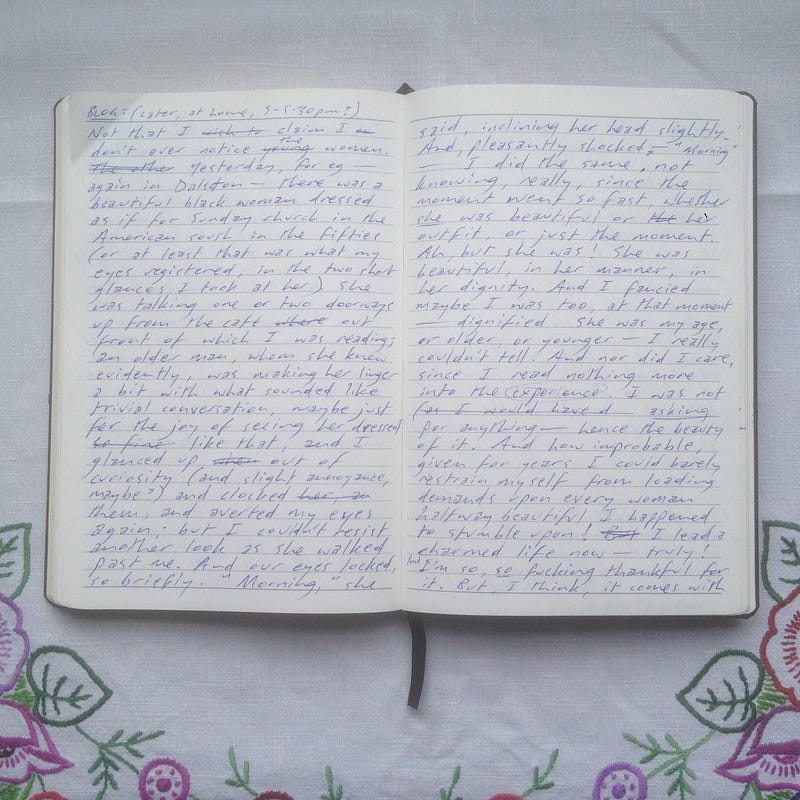 BLOG: (later, at home, 5-5.30pm?)
Not that I wish to claim I an
don't ever notice the young women.
The other yesterday, for eg
again in Dalston — there was a
beautiful black woman dressed
as if for Sunday church in the
American south in the fifties
(or at least that was what my
eyes registered, in the two short
glances I took at her). She
was talking one or two doorways
up from the café where out
front of which I was reading;
an older man, whom she knew
evidently, was making her linger
a bit with what sounded like
trivial conversation, maybe just
for the joy of seeing her dressed
so fine like that, and I
glanced up when out of
curiosity (and slight annoyance,
maybe?) and clocked her, an
them, and averted my eyes
again; but I couldn't resist
another look as she walked
past me. And our eyes locked,
so briefly. "Morning," she
said, inclining her head slightly.
And, pleasantly shocked, — "Morning"
I did the same, not
knowing, really, since the
moment went so fast, whether
she was beautiful or the her
outfit or just the moment.
Ah, but she was! She was
beautiful, in her manner, in
her dignity. And I fancied
maybe I was too, at that moment
— dignified. She was my age,
or older, or younger — I really
couldn't tell. And nor did I care,
since I read nothing more
into the experience. I was not
(as I would have d — asking
for anything — hence the beauty
of it. And how improbable,
given for years I could barely
restrain myself from loading
demands upon every woman
halfway beautiful I happened
to stumble upon! But I lead a
charmed life now — truly!
And I'm so, so fucking thankful for
it. But, I think, it comes with